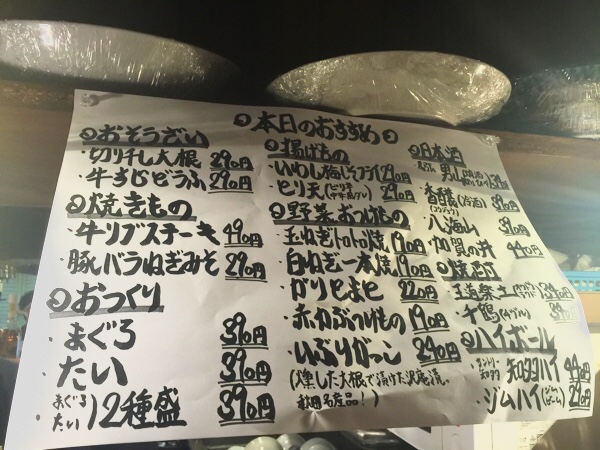 本日のおすすめ
おそうざい
切り干し大根 290円
牛すじどうふ 290円
焼きもの
牛リブステーキ 490円
豚バラねぎみそ 290円
おつくり
まぐろ 390円
たい 390円
まぐろ
たい
2種盛 390円
揚げもの
いわし梅じそフライ 290円
とり天 290円
野菜・おつけもの
玉ねぎトロトロ焼 190円
白ねぎ一本焼 190円
ガリとまと 220円
赤かぶつけもの 190円
いぶりがっこ 240円
(燻した大根で漬けた沢庵漬。
秋田名産品!)
日本酒
男山
香醸(冷酒) 390円
八海山 390円
加賀の井 440円
焼酎
ハイボール
サントリー
知多 知多ハイ 440円
ジムハイ(ジム
ビーム) 290円